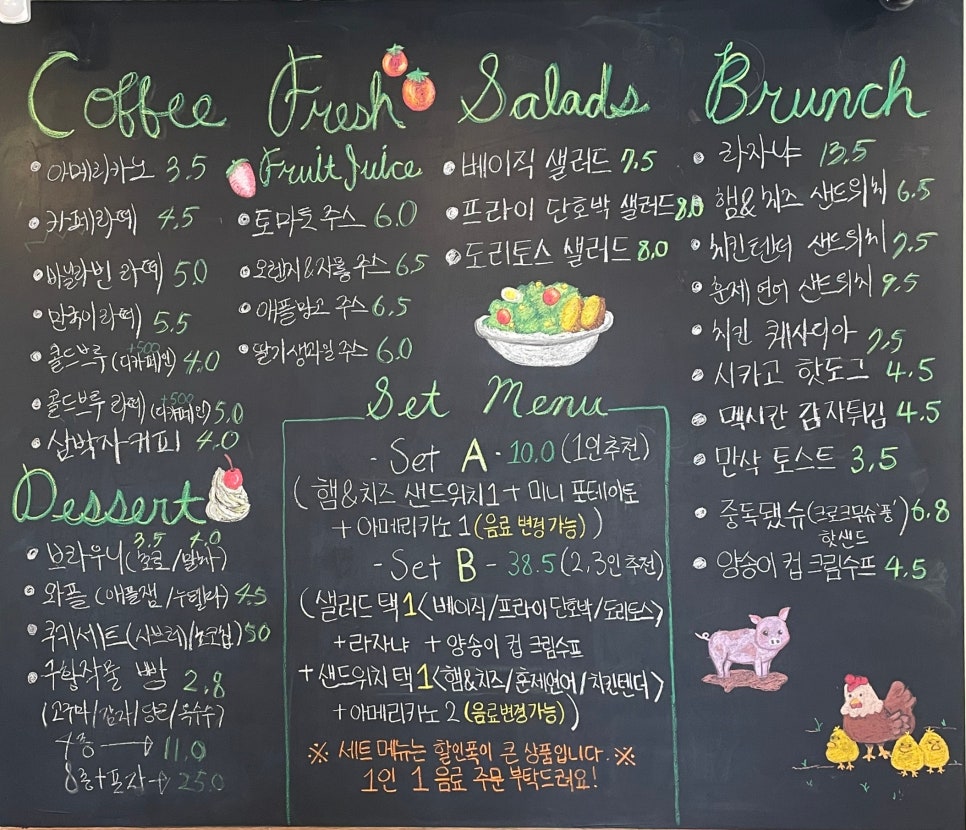 Coffee
아메리카노 3.5
카페라떼 4.5
바닐라빈 라떼 5.0
만국이라떼 5.5
+500
콜드브루 (디카페인) 4.0
+500
콜드브루 라떼 (디카페인) 5.0
삼박자커피 4.0
Dessert
3.5 4.0
브라우니 (초코/말차)
와플 (애플잼/누텔라) 4.5
쿠키세트 (샤브레/초코칩) 5.0
구황작물 빵 2.8
(고구마/감자/당근/옥수수)
4종 → 11.0
8종+포장 → 25.0
Fresh
Fruit Juice
토마토 주스 6.0
오렌지&자몽 주스 6.5
애플망고 주스 6.5
딸기생과일 주스 6.0
Salads
베이직 샐러드 7.5
프라이 단호박 샐러드 8.0
도리토스 샐러드 8.0
Set Menu
- Set A - 10.0 (1인추천)
(햄&치즈 샌드위치1 + 미니 포테이토
+ 아메리카노 1 (음료 변경 가능))
- Set B - 38.5 (2,3인 추천)
(샐러드 택1<베이직/프라이 단호박/도리토스>
+라자냐 + 양송이 컵 크림수프
+샌드위치 택1<햄&치즈/훈제연어/치킨텐더>
+아메리카노 2 (음료변경가능))
※ 세트 메뉴는 할인폭이 큰 상품입니다. ※
1인 1 음료 주문 부탁드려요!
Brunch
라자냐 13.5
햄&치즈 샌드위치 6.5
치킨텐더 샌드위치 7.5
훈제 연어 샌드위치 9.5
치킨 퀘사디아 7.5
시카고 핫도그 4.5
멕시칸 감자튀김 4.5
만삭 토스트 3.5
중독됐슈 (크로크무슈 풍) 6.8
핫샌드
양송이 컵 크림수프 4.5